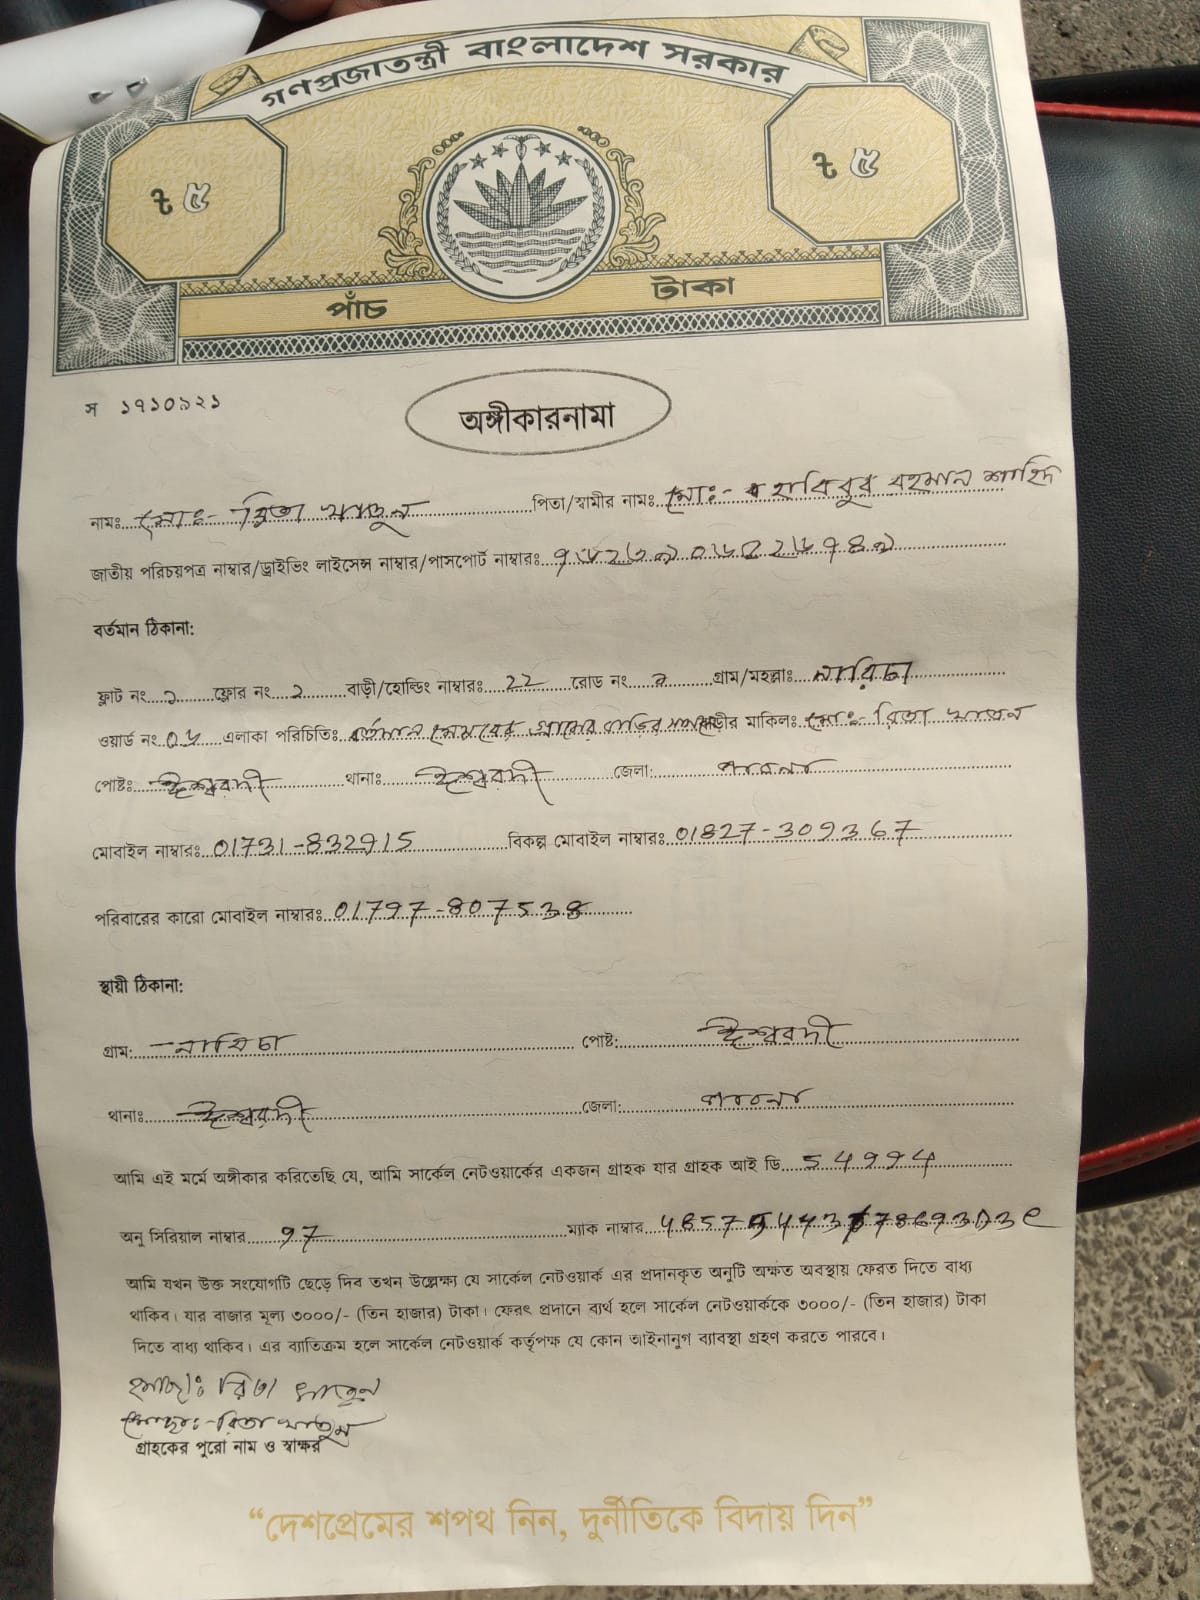 গণপ্রজাতন্ত্রী বাংলাদেশ সরকার
৳ ৫ ৳ ৫
পাঁচ টাকা
স ১৭১০৯২১
অঙ্গীকারনামা
নামঃ মোঃ- রিতা খাতুন পিতা/স্বামীর নামঃ মোঃ- হাবিবুর রহমান শাহিদ
জাতীয় পরিচয়পত্র নাম্বার/ড্রাইভিং লাইসেন্স নাম্বার/পাসপোর্ট নাম্বারঃ
বর্তমান ঠিকানা:
ফ্লাট নং ১ ফ্লোর নং ২ বাড়ী/হোল্ডিং নাম্বারঃ 22 রোড নং গ্রাম/মহল্লাঃ নারিচা
ওয়ার্ড নং ০৮ এলাকা পরিচিতিঃ বর্তমান মেম্বরের বাড়ির মাকিলঃ মোঃ- রিতা খাতুন
পোষ্টঃ ঈশ্বরদী থানাঃ ঈশ্বরদী জেলা: পাবনা
মোবাইল নাম্বারঃ 01731-832915 বিকল্প মোবাইল নাম্বারঃ 01827-309367
পরিবারের কারো মোবাইল নাম্বারঃ 01797-807538
স্থায়ী ঠিকানা:
গ্রাম: নারিচা পোষ্ট: ঈশ্বরদী
থানাঃ ঈশ্বরদী জেলা: পাবনা
আমি এই মর্মে অঙ্গীকার করিতেছি যে, আমি সার্কেল নেটওয়ার্কের একজন গ্রাহক যার গ্রাহক আই ডি 54994
অনু সিরিয়াল নাম্বার 97 ম্যাক নাম্বার
আমি যখন উক্ত সংযোগটি ছেড়ে দিব তখন উল্লেক্ষ্য যে সার্কেল নেটওয়ার্ক এর প্রদানকৃত অনুটি অক্ষত অবস্থায় ফেরত দিতে বাধ্য
থাকিব। যার বাজার মূল্য ৩০০০/- (তিন হাজার) টাকা। ফেরৎ প্রদানে ব্যর্থ হলে সার্কেল নেটওয়ার্ককে ৩০০০/- (তিন হাজার) টাকা
দিতে বাধ্য থাকিব। এর ব্যাতিক্রম হলে সার্কেল নেটওয়ার্ক কর্তৃপক্ষ যে কোন আইনানুগ ব্যাবস্থা গ্রহণ করতে পারবে।
মোছাঃ রিতা খাতুন
মোছাঃ- রিতা খাতুন
গ্রাহকের পুরো নাম ও স্বাক্ষর
“দেশপ্রেমের শপথ নিন, দুর্নীতিকে বিদায় দিন”